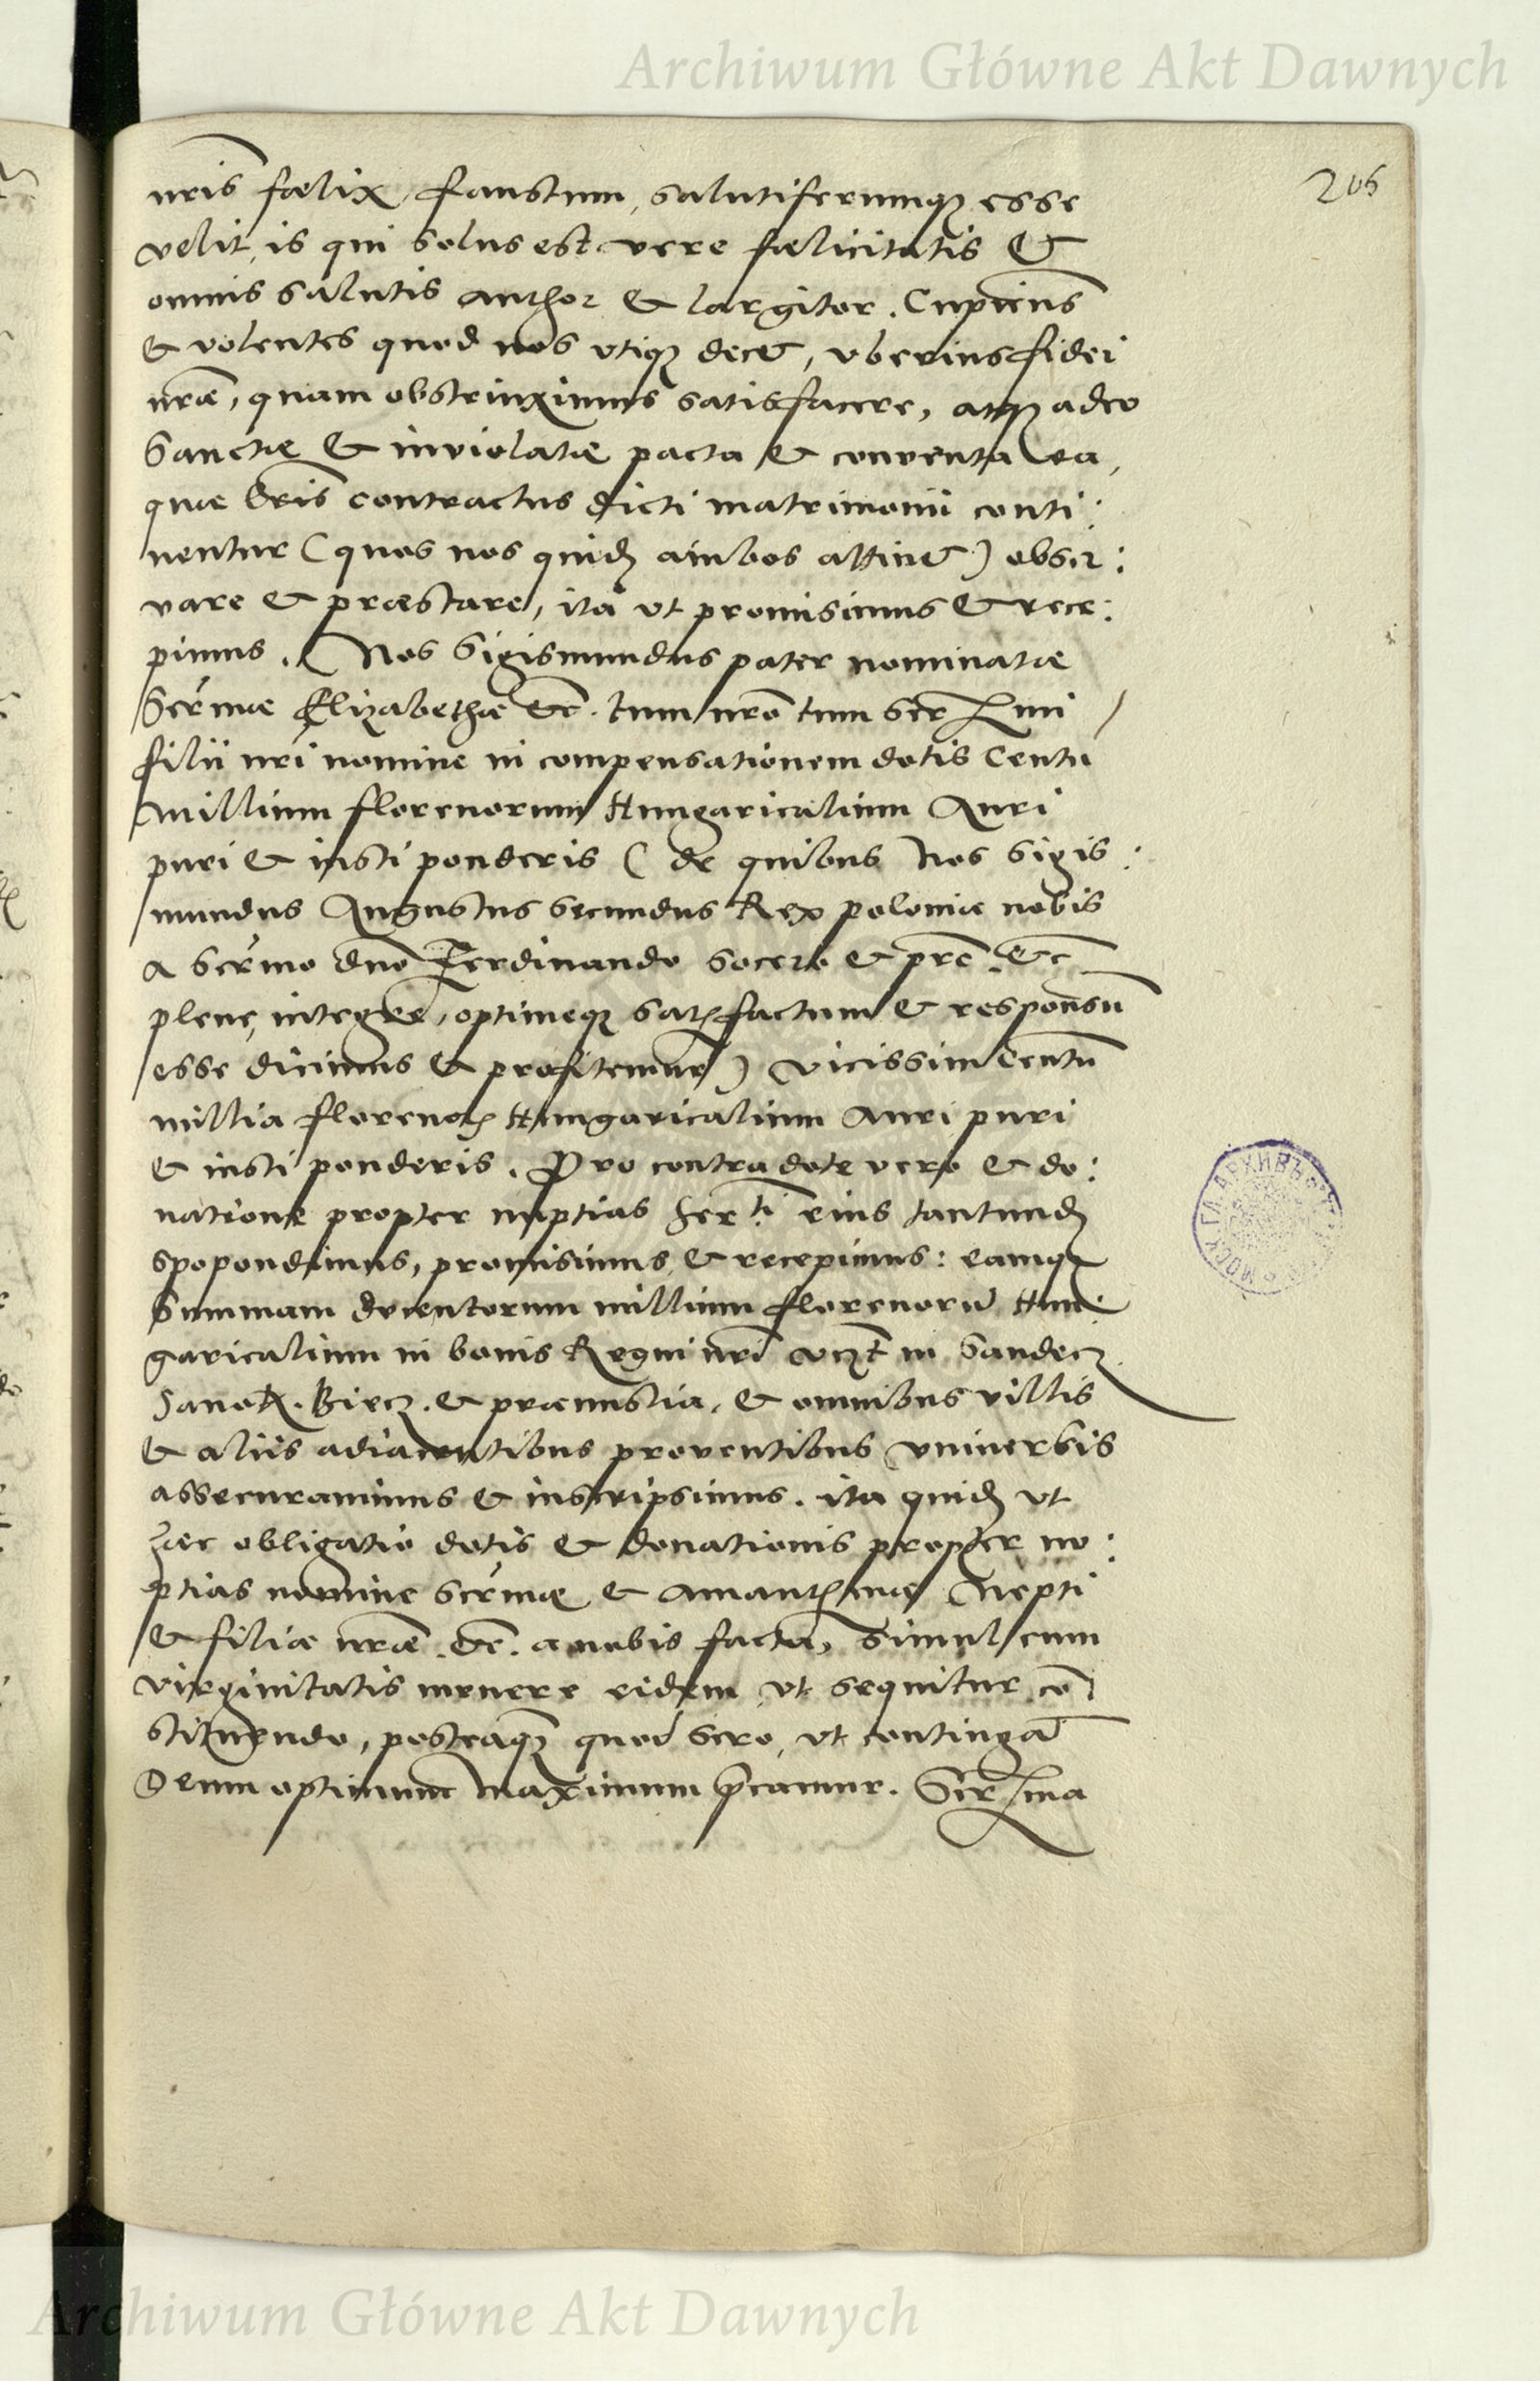 Archiwum Główne Akt Dawnych
205
nris fœlix, faustum, salutiferumq; esse
velit, is qui solus est vere fœlicitatis &
omnis salutis author & largitor. Cupientes
& volentes quod nos utiq; decet, uberius fidei
nræ, quam obstrinximus satisfacere, atq; adeo
Sanctæ & inviolatæ pacta & conventa ea,
quæ lris contractus dicti matrimonii conti:
nentur (quos nos quidē ambos attinet) obser:
vare & præstare, ita ut promisimus & rece:
pimus. Nos Sigismundus pater nominatæ
Sermæ Elizabethæ &c. tum nro tum Ser mi
filii nri nomine in compensationem dotis Centū
millium florenorum Hungaricalium Auri
puri & iusti ponderis (de quibus Nos Sigis:
mundus Augustus secundus Rex poloniæ nobis
a sermo dno Ferdinando socero & pre &c
plene, integre, optimeq; satisfactum & responsū
esse dicimus & profitemur) vicissim Centū
millia florenor Hungaricalium Auri puri
& iusti ponderis. Pro contradote vero & do:
natione propter nuptias Serti eius tantundē
spopondimus, promisimus & recepimus: eamq;
Summam ducentorum millium florenorū Hun:
garicalium in bonis Regni nri vizt in Sandecz
Sanok. Biecz. & præmistia, & omnibus villis
& aliis adiacentibus proventibus universis
assecuravimus & inscripsimus. ita quidē ut
hæc obligatio dotis & donationis propter nu:
ptias nomine Sermæ & Amantmæ Nepti
& filiæ nræ &c. a nobis facta, Simul cum
virginitatis munere eidem ut sequitur cō
stituendo, posteaq; quod sero, ut contingat
Deum optimum maximum precamur. Ser ma
ГЛ. АРХИВЪ
МОСК
Archiwum Główne Akt Dawnych